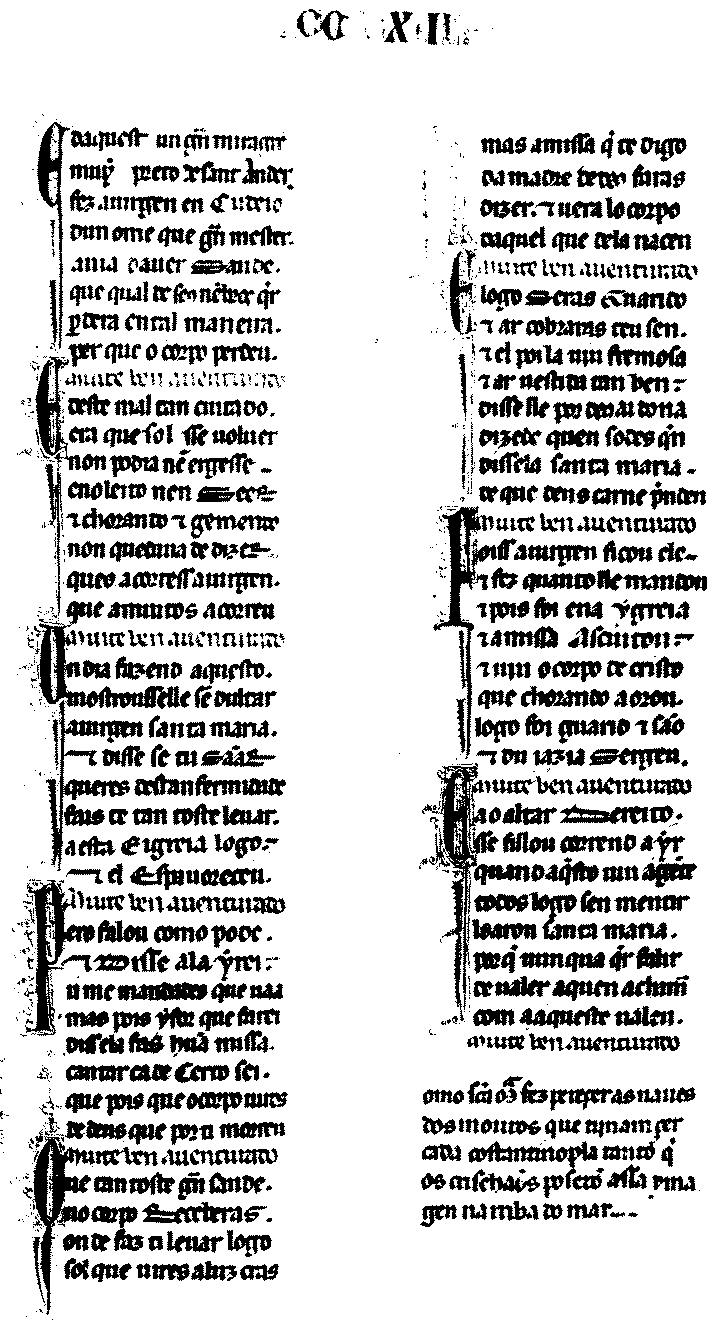 CC XII
E daquest un gran miragre
muy preto de sant Ander
fez a uirgen en Cudeio
dun ome que gran mester.
auia dauer saude.
que qual de seo
perdera en tal maneira.
per que o corpo perdeu.
Muite ben auenturado
E deste mal tan cuitado.
era que sol sse uoluer
non podia nen ergesse
eno leito nen seer
⁊ chorando ⁊ gemendo
non quedaua de dizer
queo acorress a uirgen.
que a muitos acorreu
Muite ben auenturado
U n dia fazend aquesto.
mostrousselle se dultar
a uirgen santa maria.
⁊ disse se tu
queres destanfermidade
fais te tan toste leuar.
a esta Eigreia logo.
⁊ el Esmoreceu.
Muite ben auenturado
P ero falou como pode.
⁊ disse ala yrei
u me mandades que uaa
mas pois y for que farei
dissela fas hũa missa.
cantar ca de Certo sei.
que pois que o corpo uires
de deus que por ti morreu
Muite ben auenturado
Q ue tan toste gran saude.
no corpo Receberas.
onde faz ti leuar logo
sol que uires a luz cras
mas a missa q̃ te digo
da madre de deus faras
dizer. ⁊ uera lo corpo
daquel que dela nacen
Muite ben auenturado
E logo seras Guarido
⁊ ar cobraras teu sen.
⁊ el poila uiu fremosa
⁊ ar uestida tan ben
disse lle por deus ai dona
dizede quen sodes
dissela santa maria.
de que deus carne prendeu
Muite ben auenturado
P oiss a uirgen ficou ele
⁊ fez quanto lle mandou
⁊ pois foi ena ygreia
⁊ a missa Ascuitou
⁊ uiu o corpo de cristo
que chorando aorou.
logo foi guarido ⁊ são
⁊ du iazia sergeu.
Muite ben auenturado
E ao altar dereito.
sse fillou correnda yr
quand aq̃sto uiu a gente
todos logo sen mentir
loaron santa maria.
por q̃ nunqua q̃r falir
de ualer a quen a chama
com a aqueste ualeu.
Muite ben auenturado
omo sc̃a fez perteeras naues
dos mouros que tijnan cer
cada costantinopla tanto q̃
os crischaos poseron a ssa yma
gen na riba do mar.